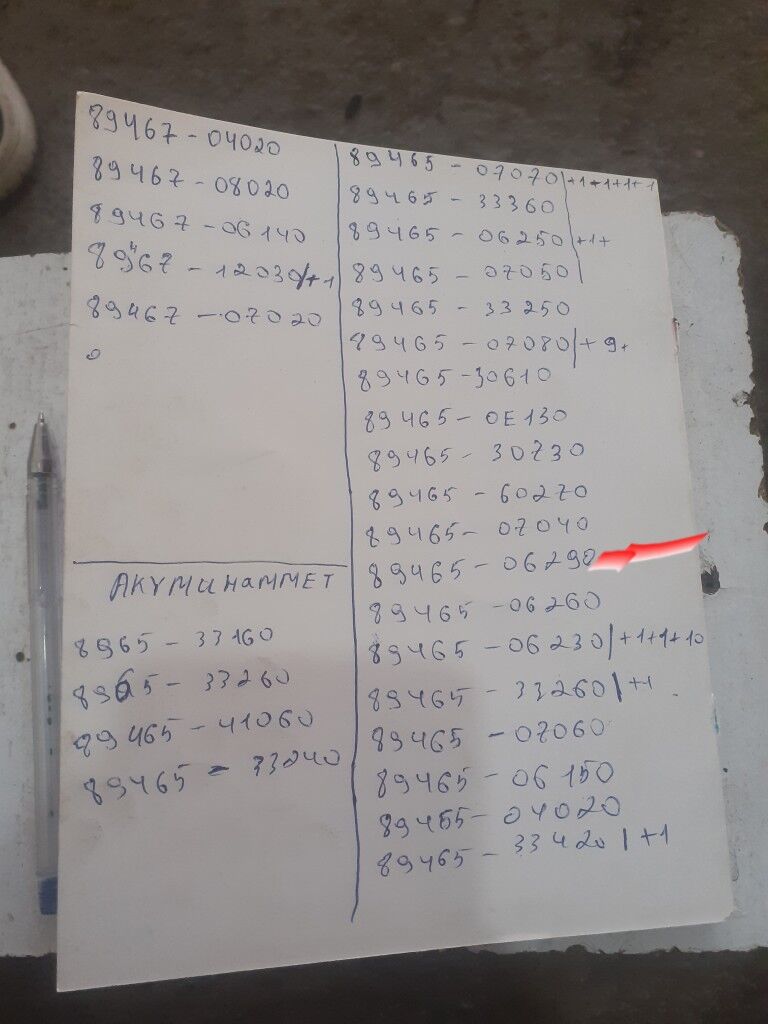 89467-04020
89467-08020
89467-06140
89467-12030/+1
89467-07020
AKYMUHAMMET
8965-33160
8965-33260
89465-41060
89465-33240
89465-07070/+1+1+1+1
89465-33360
89465-06250/+1+
89465-07050/
89465-33250
89465-07080/+9.
89465-30610
89465-0E130
89465-30730
89465-60270
89465-07040
89465-06290
89465-06260
89465-06230/+1+1+10
89465-33260/+1
89465-07060
89465-06150
89465-04020
89465-33420/+1